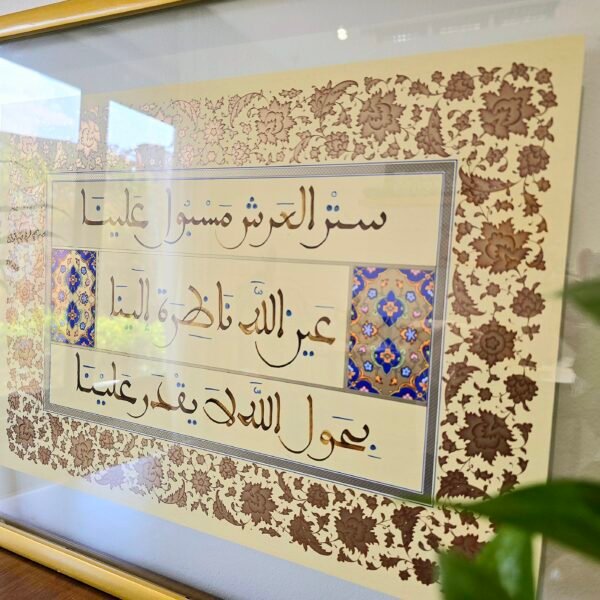 سِتْرُ العَرشِ مَسْبُولٌ عَلَينَا
عَينُ اللَّهِ نَاظِرَة الَينَا
بِحَولِ اللَّهِ لَا يقْدَر عَلَيْنَا